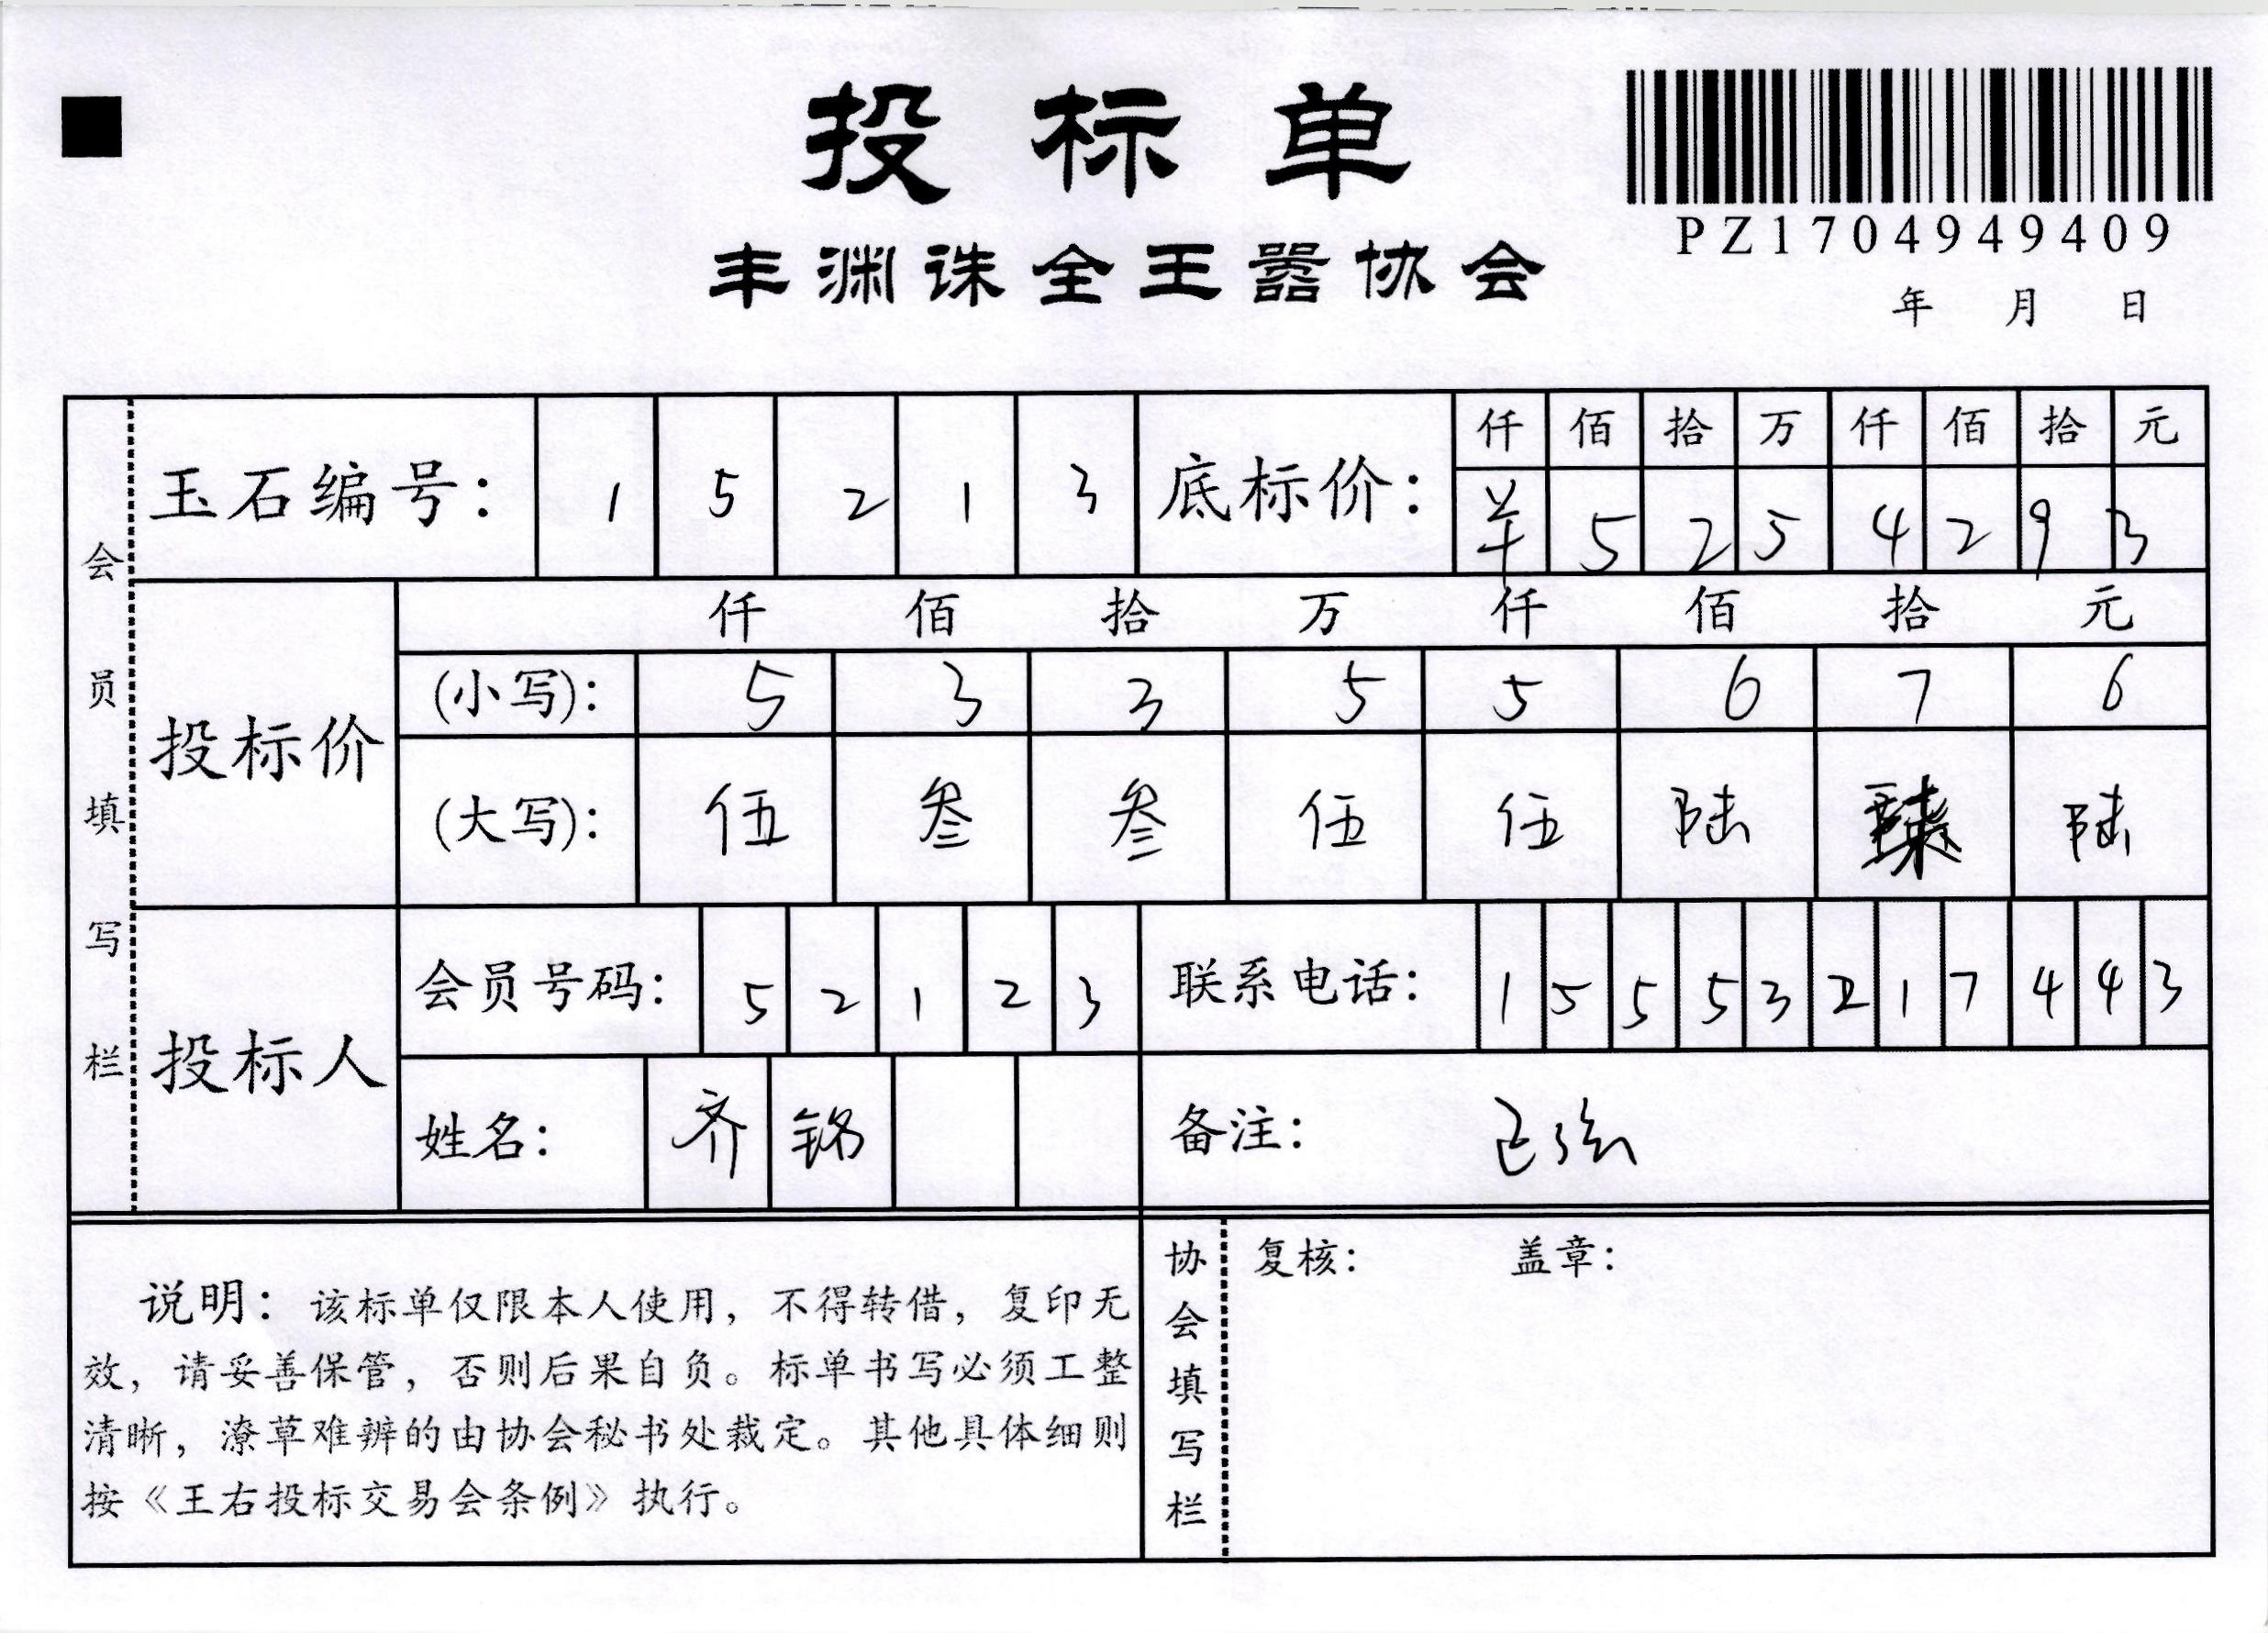 投标单
丰渊诛全王嚣协会
PZ1704949409
年 月 日
会员填写栏
玉石编号: 1 5 2 1 3
底标价: 仟 佰 拾 万 仟 佰 拾 元
羊 5 2 5 4 2 9 3
投标价
仟 佰 拾 万 仟 佰 拾 元
(小写): 5 3 3 5 5 6 7 6
(大写): 伍 叁 叁 伍 伍 陆 柒 陆
投标人
会员号码: 5 2 1 2 3
联系电话: 1 5 5 5 3 2 1 7 4 4 3
姓名: 齐 铭
备注:
说明: 该标单仅限本人使用, 不得转借, 复印无
效, 请妥善保管, 否则后果自负。标单书写必须工整
清晰, 潦草难辨的由协会秘书处裁定。其他具体细则
按《王右投标交易会条例》执行。
协会填写栏
复核: 盖章: